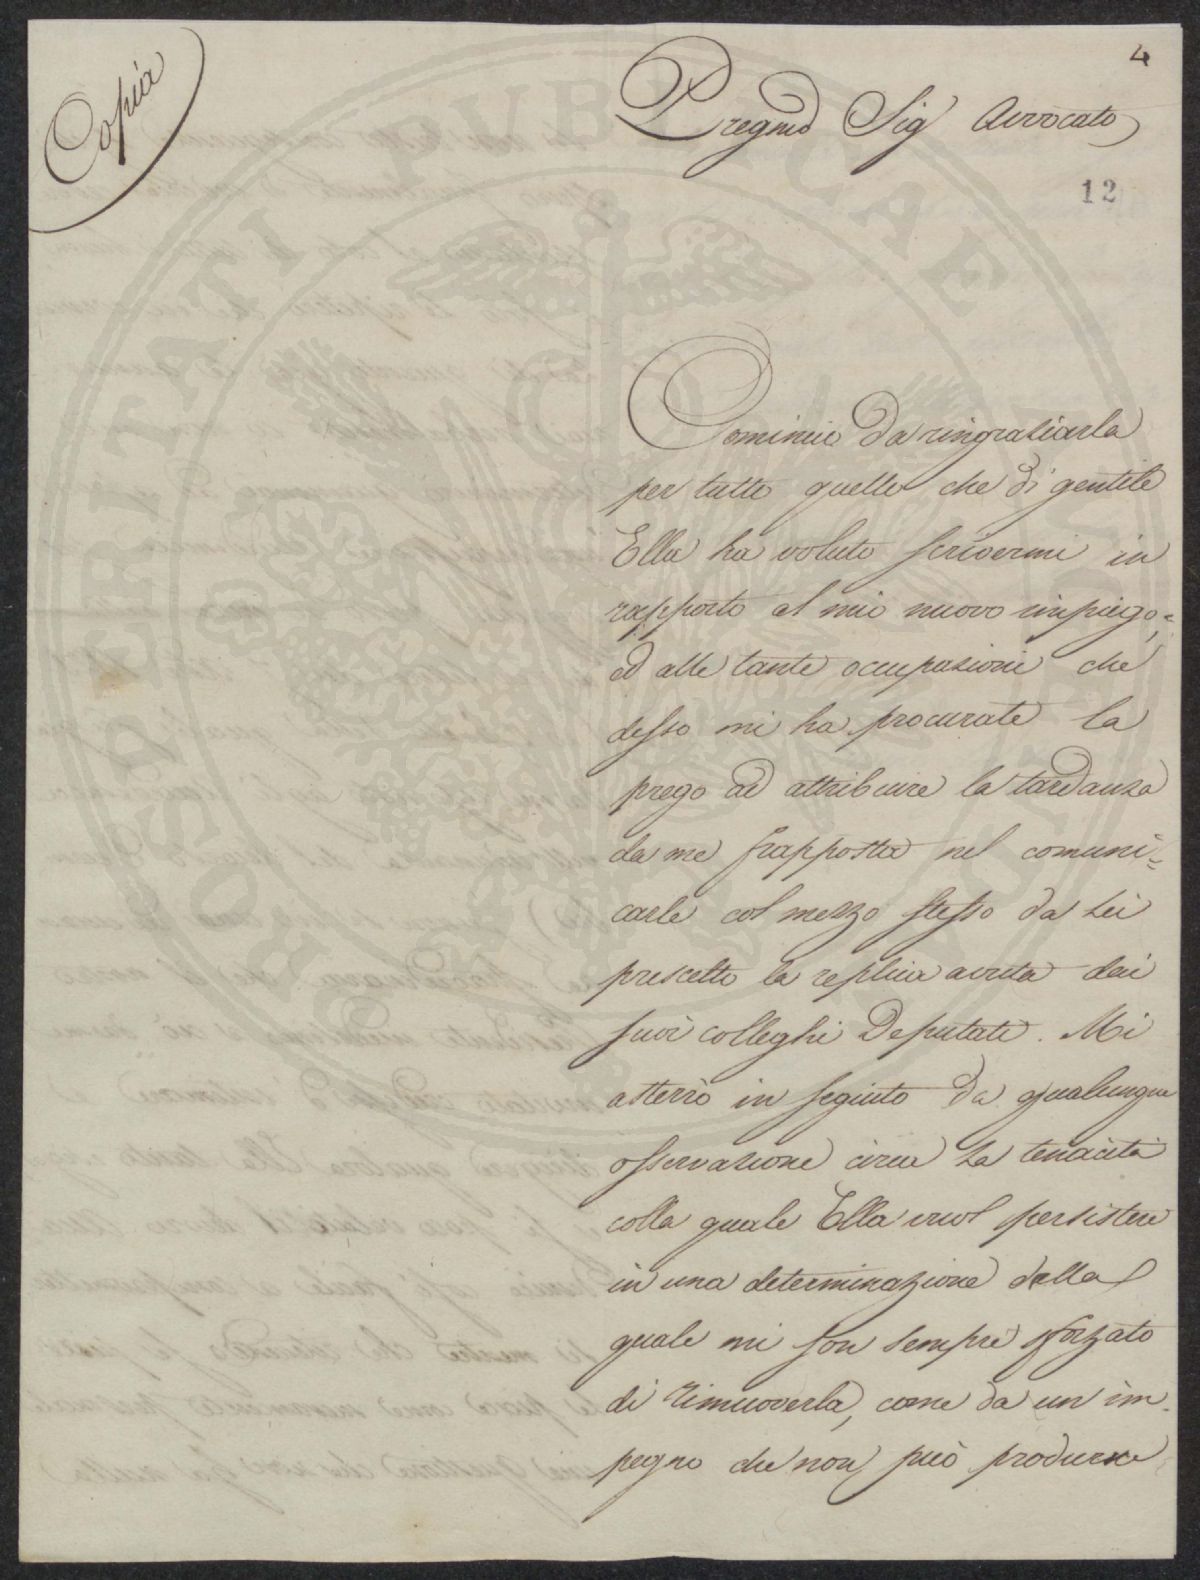 4
Copia
Pregmo Sig Avvocato
12
Comincio da ringraziarla
per tutto quello che di gentile
Ella ha voluto scrivermi in
rapporto al mio nuovo impiego,=
ed alle tante occupazioni che
desso mi ha procurate la
prego ad attribuire la tardanza
da me frapposta nel comuni=
carle col mezzo stesso da Lei
prescelto la replica avuta dai
suoi colleghi Deputati. Mi
asterrò in seguito da qualunque
osservazione circa la tenacità
colla quale Ella vuol persistere
in una determinazione dalla
quale mi son sempre sforzato
di rimuoverla, come da un im-
pegno che non può produrre